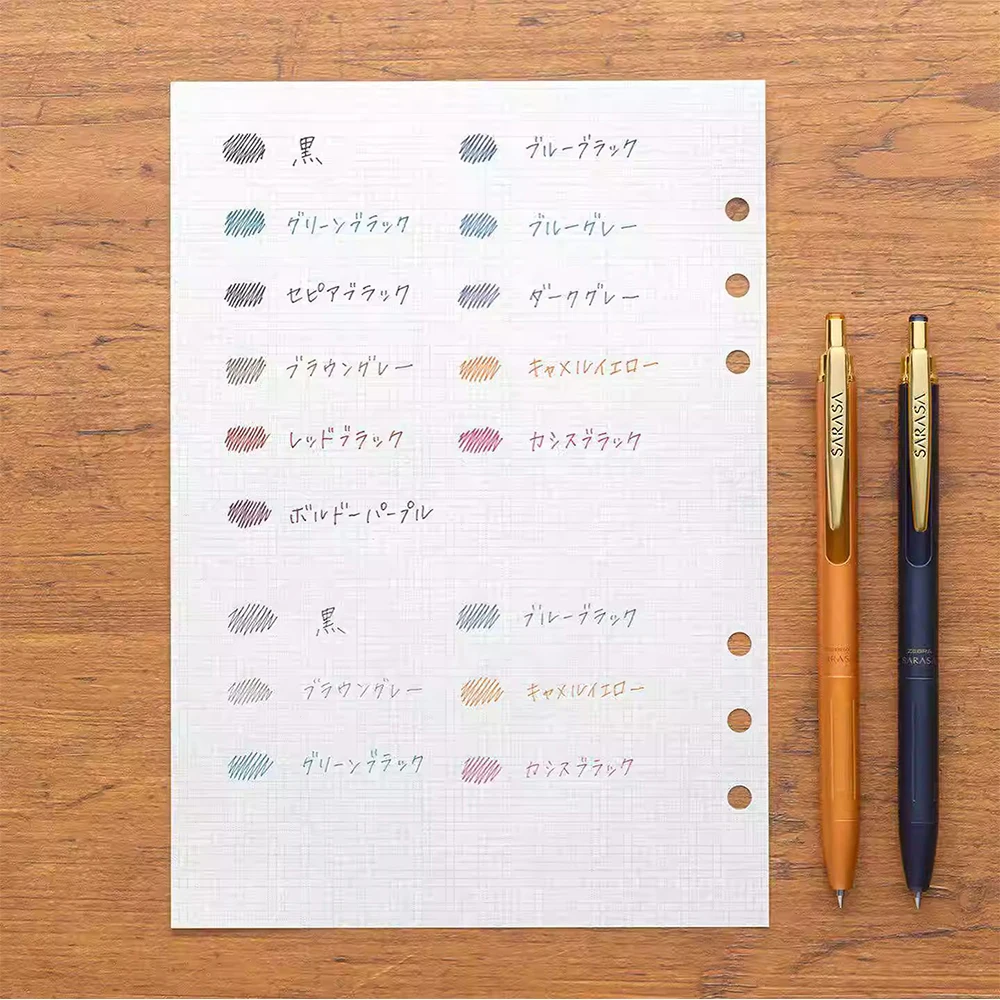 黒 ブルーブラック
グリーンブラック ブルーグレー
セピアブラック ダークグレー
ブラウングレー キャメルイエロー
レッドブラック カシスブラック
ボルドーパープル
黒 ブルーブラック
ブラウングレー キャメルイエロー
グリーンブラック カシスブラック
SARASA
SARASA
ZEBRA
SARASA
SARASA